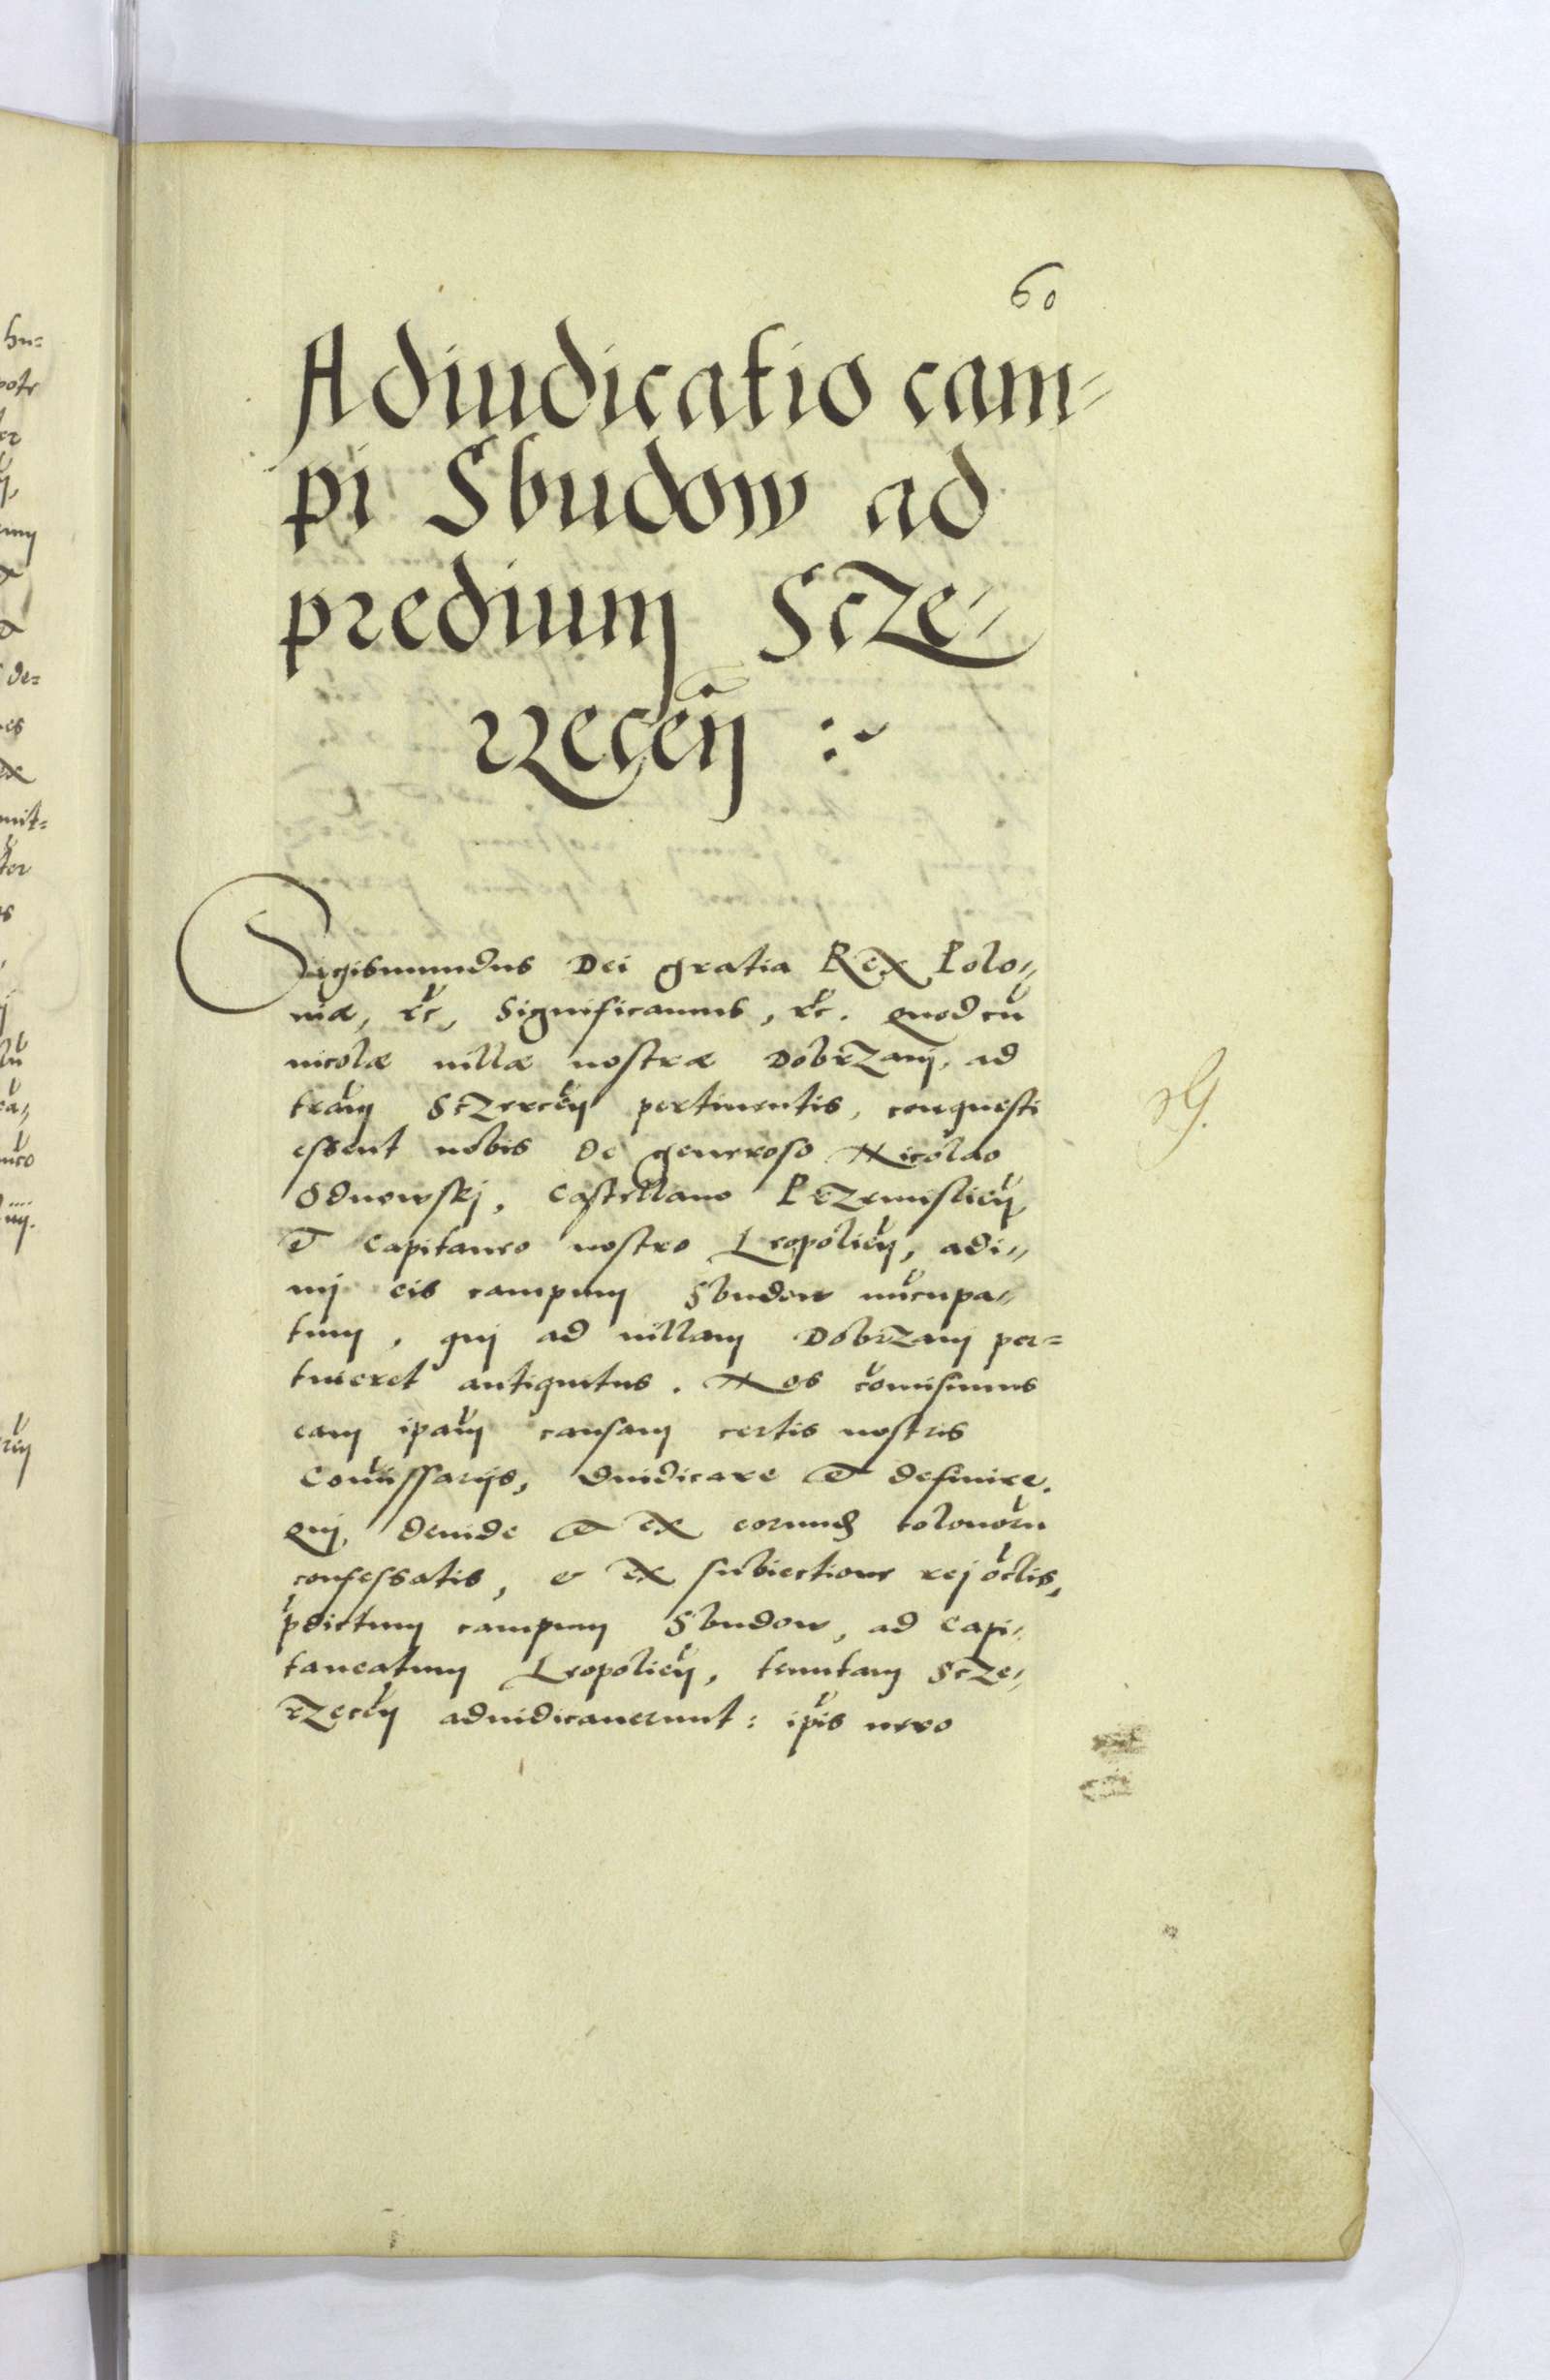 60
Adiudicatio cam-
pi Sbudow ad
predium Scze-
rzecen̄ :~
Sigismundus Dei gratia Rex Polo-
niæ, etc, Significamus, etc. Quod cū
incolæ uillæ nostræ Dobrzanj, ad
tram̄ Sczercen̄ pertinentis, conquesti
essent nobis de generoso Nicolao
Odnowskj, Castellano Przemislien̄,
et Capitaneo nostro Leopolien̄, adi-
mj eis campum Sbudow nūcupa-
tum, quj ad uillam Dobrzanj per=
tineret antiquitus. Nos cōmisimus
eam ipam̄ causam certis nostris
Com̄issarijs, diudicare et definire.
Quj, deinde et ex eorund colonoru
confessatis, & ex subiectione rej oc̄lis,
p̄dictum campum Sbudow, ad Capi-
taneatum Leopolien̄, tenutam Scze-
rzecen̄ adiudicauerunt: ip̄is uero